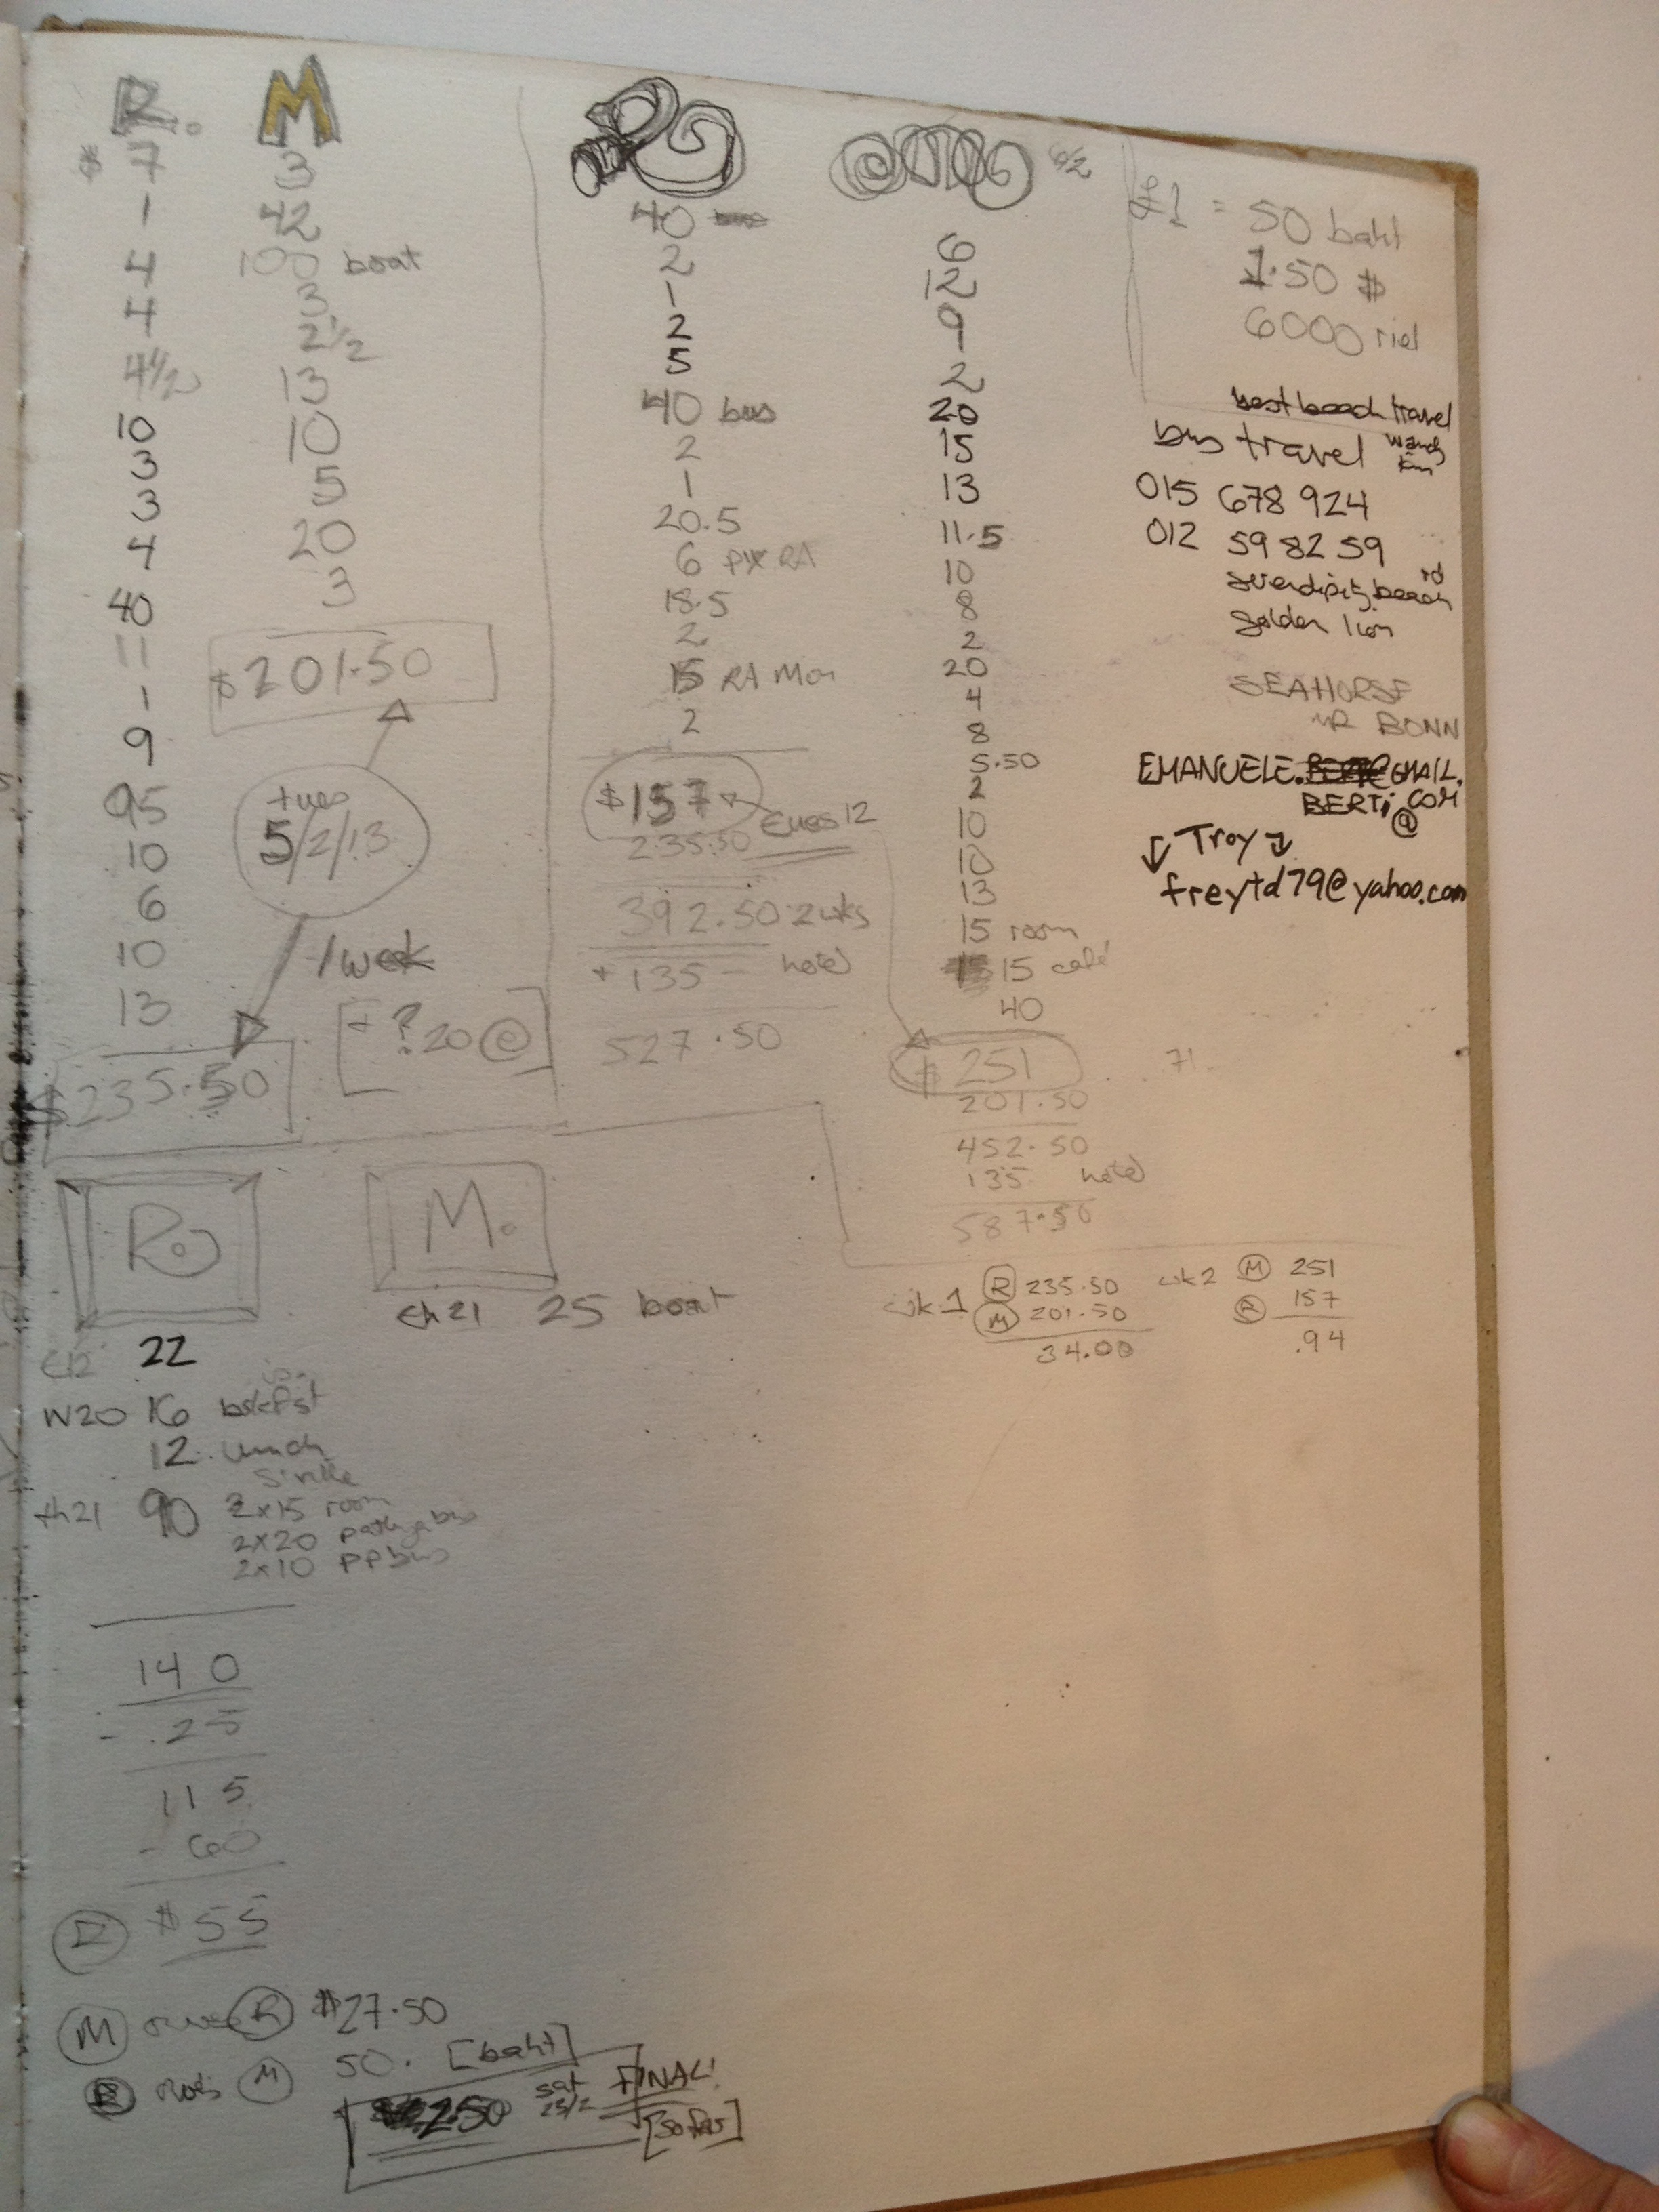 R. M
$ 7
1
4
4
4½
10
3
3
4
40
11
1
9
95
10
6
10
13
$235.50
3
42
100 boat
3
2½
13
10
5
20
3
$201.50
tues
5/2/13
1 week
+ ? 20 @
40
2
1
2
5
40 bus
2
1
20.5
6 RA
18.5
2
15 RA Mon
2
$157
tues 12
235.50
392.50 2 wks
+ 135 – hotel
527.50
6/2
6
12
9
2
20
15
13
11.5
10
8
2
20
4
8
5.50
2
10
10
13
15 room
15 café
40
$ 251
201.50
452.50
135 hotel
587.50
71
£1 = 50 baht
1.50 $
6000 riel
best beach travel
bus travel
015 678 924
012 59 82 59
serendipity beach rd
golden lion
SEAHORSE
MR BONN
EMANUELE. GMAIL.
BERTI @ COM
Troy
freytd79@yahoo.com
wk 1 R 235.50
M 201.50
34.00
wk 2 M 251
R 157
.94
R.
22
W20 16 bskfst
12. lunch
S'ville
th21 90 2x15 room
2x20 bus
2x10 PP bus
140
- .25
115
- 60
R $55
M.
th 21 25 boat
M owes R $27.50
R owes M 50. [baht]
250 sat 23/2 FINAL!
[so far]